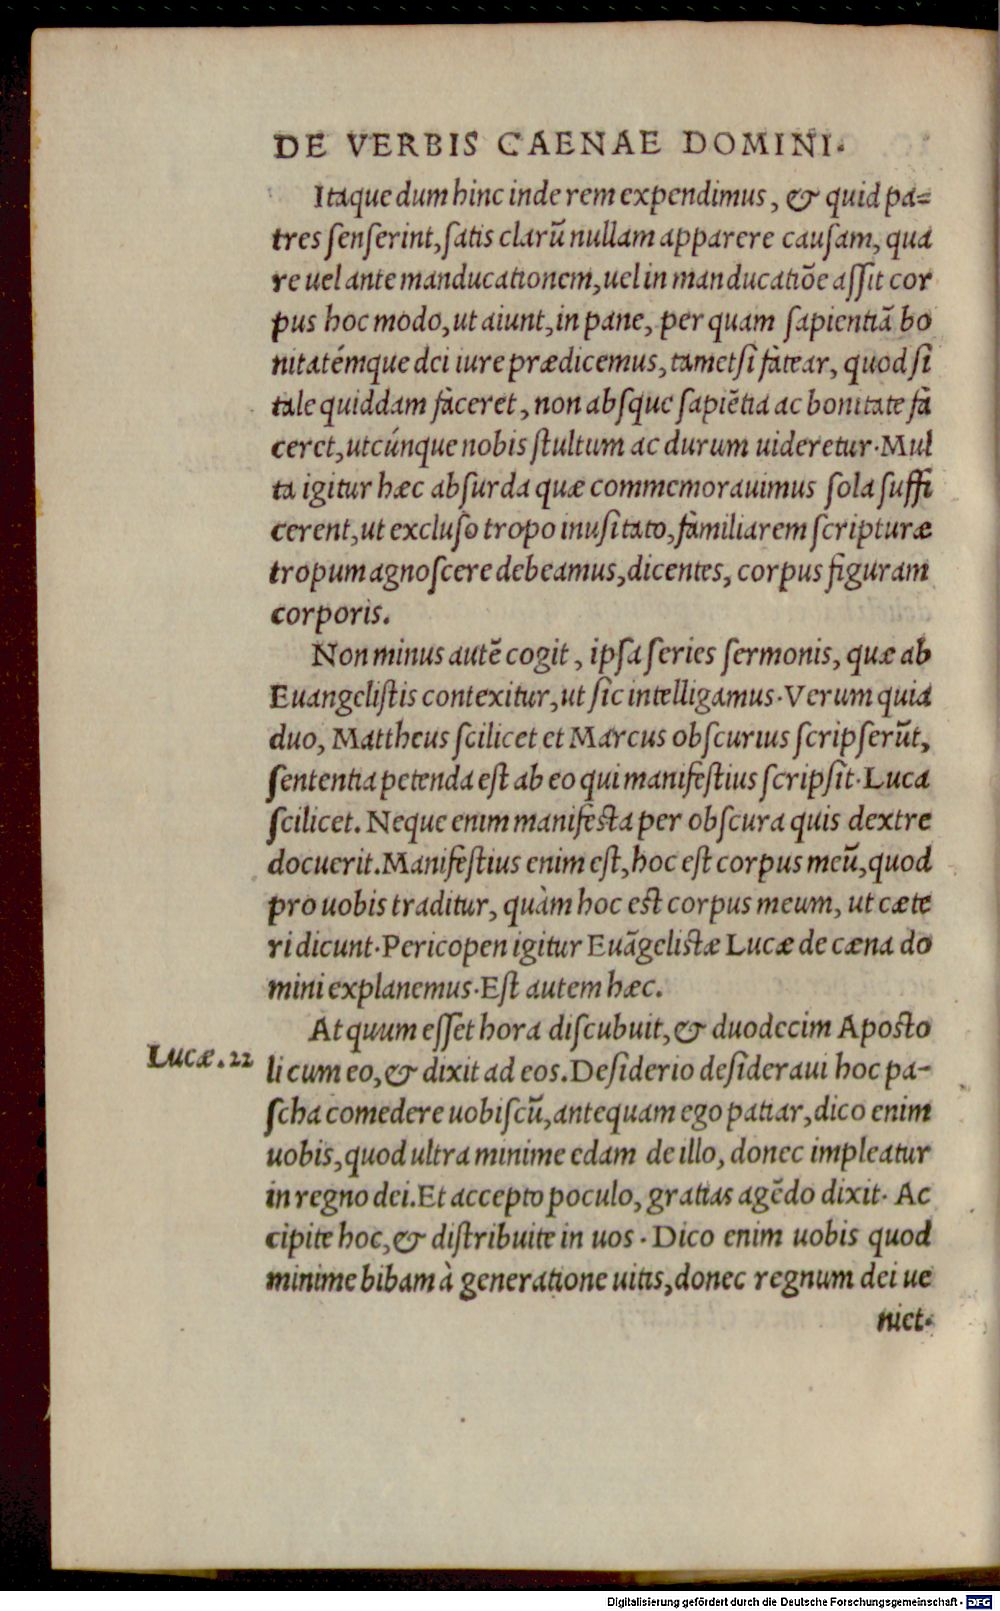 DE VERBIS CAENAE DOMINI.
Itaque dum hinc inde rem expendimus, & quid pa=
tres ſenſerint, ſatis clarũ nullam apparere cauſam, qua
re uel ante manducationem, uel in manducatiõe aſſit cor
pus hoc modo, ut aiunt, in pane, per quam ſapientiã bo
nitatémque dei iure prædicemus, tametſi fatear, quod ſi
tale quiddam faceret, non abſque ſapiẽtia ac bonitate fa
ceret, utcúnque nobis ſtultum ac durum uideretur. Mul
ta igitur hæc abſurda quæ commemorauimus ſola ſuffi
cerent, ut excluſo tropo inuſitato, familiarem ſcripturæ
tropum agnoſcere debeamus, dicentes, corpus figuram
corporis.
Non minus autẽ cogit, ipſa ſeries ſermonis, quæ ab
Euangeliſtis contexitur, ut ſic intelligamus. Verum quia
duo, Mattheus ſcilicet et Marcus obſcurius ſcripſerũt,
ſententia petenda eſt ab eo qui manifeſtius ſcripſit. Luca
ſcilicet. Neque enim manifeſta per obſcura quis dextre
docuerit. Manifeſtius enim eſt, hoc eſt corpus meũ, quod
pro uobis traditur, quàm hoc eſt corpus meum, ut cæte
ri dicunt. Pericopen igitur Euãgeliſtæ Lucæ de cæna do
mini explanemus. Eſt autem hæc.
At quum eſſet hora diſcubuit, & duodecim Apoſto
Lucæ. 22
li cum eo, & dixit ad eos. Deſiderio deſideraui hoc pa-
ſcha comedere uobiſcũ, antequam ego patiar, dico enim
uobis, quod ultra minime edam de illo, donec impleatur
in regno dei. Et accepto poculo, gratias agẽdo dixit. Ac
cipite hoc, & diſtribuite in uos. Dico enim uobis quod
minime bibam à generatione uitis, donec regnum dei ue
niet.
Digitalisierung gefördert durch die Deutsche Forschungsgemeinschaft - DFG